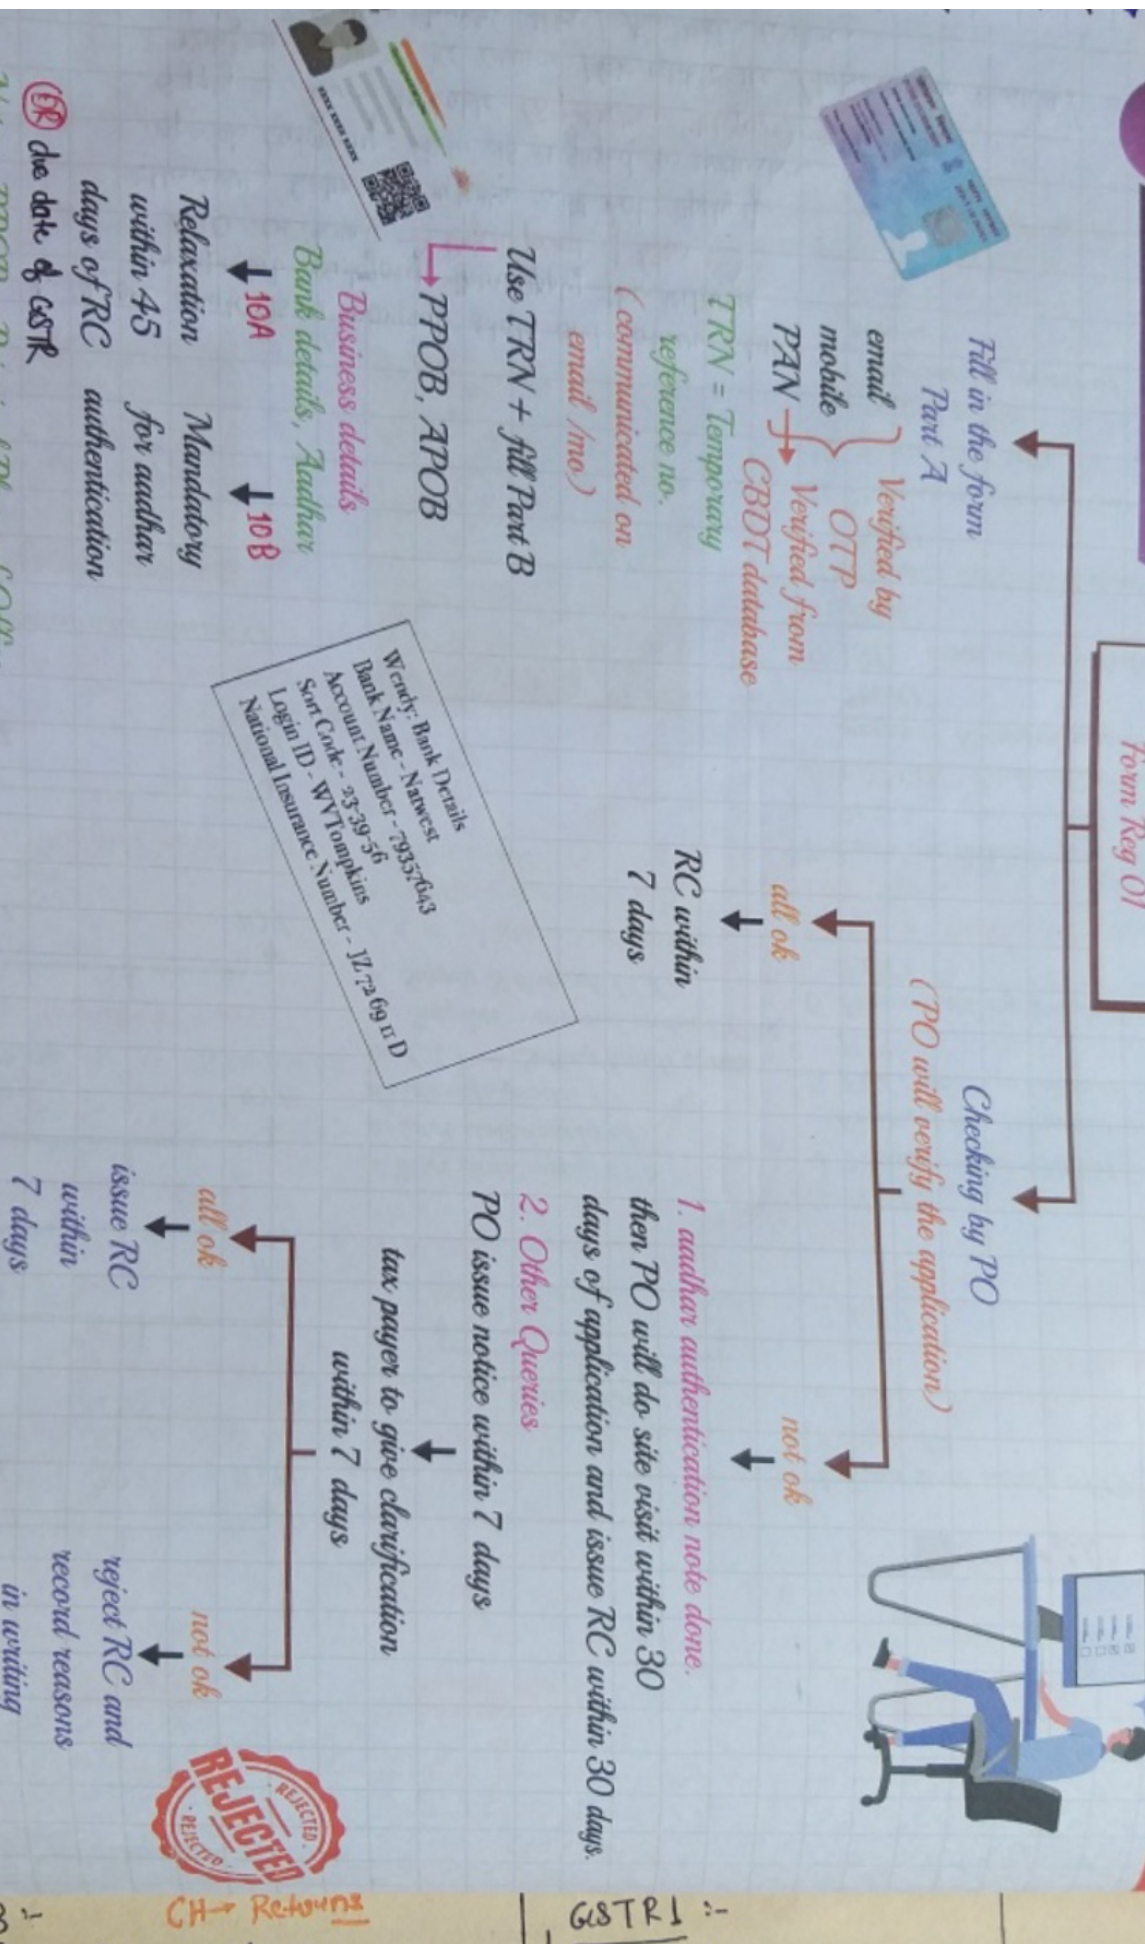 Form Reg 01
Fill in the form
Part A
email
mobile
PAN
Verified by
OTP
Verified from
CBDT database
TRN = Temporary
reference no.
(communicated on
email /mo.)
Use TRN + fill Part B
PPOB, APOB
Business details
Bank details, Aadhar
10A
Relaxation
within 45
days of RC
OR due date of GSTR
10B
Mandatory
for aadhar
authentication
XXXX XXXX XXXX
Wendy: Bank Details
Bank Name - Natwest
Account Number - 79357643
Sort Code - 23-39-56
Login ID - WVTompkins
National Insurance Number - JZ 72 69 11 D
Checking by PO
(PO will verify the application)
all ok
RC within
7 days
not ok
1. aadhar authentication note done.
then PO will do site visit within 30
days of application and issue RC within 30 days.
2. Other Queries
PO issue notice within 7 days
tax payer to give clarification
within 7 days
all ok
issue RC
within
7 days
not ok
reject RC and
record reasons
in writing
REJECTED
REJECTED
REJECTED
GSTR1 :-
CH → Returns